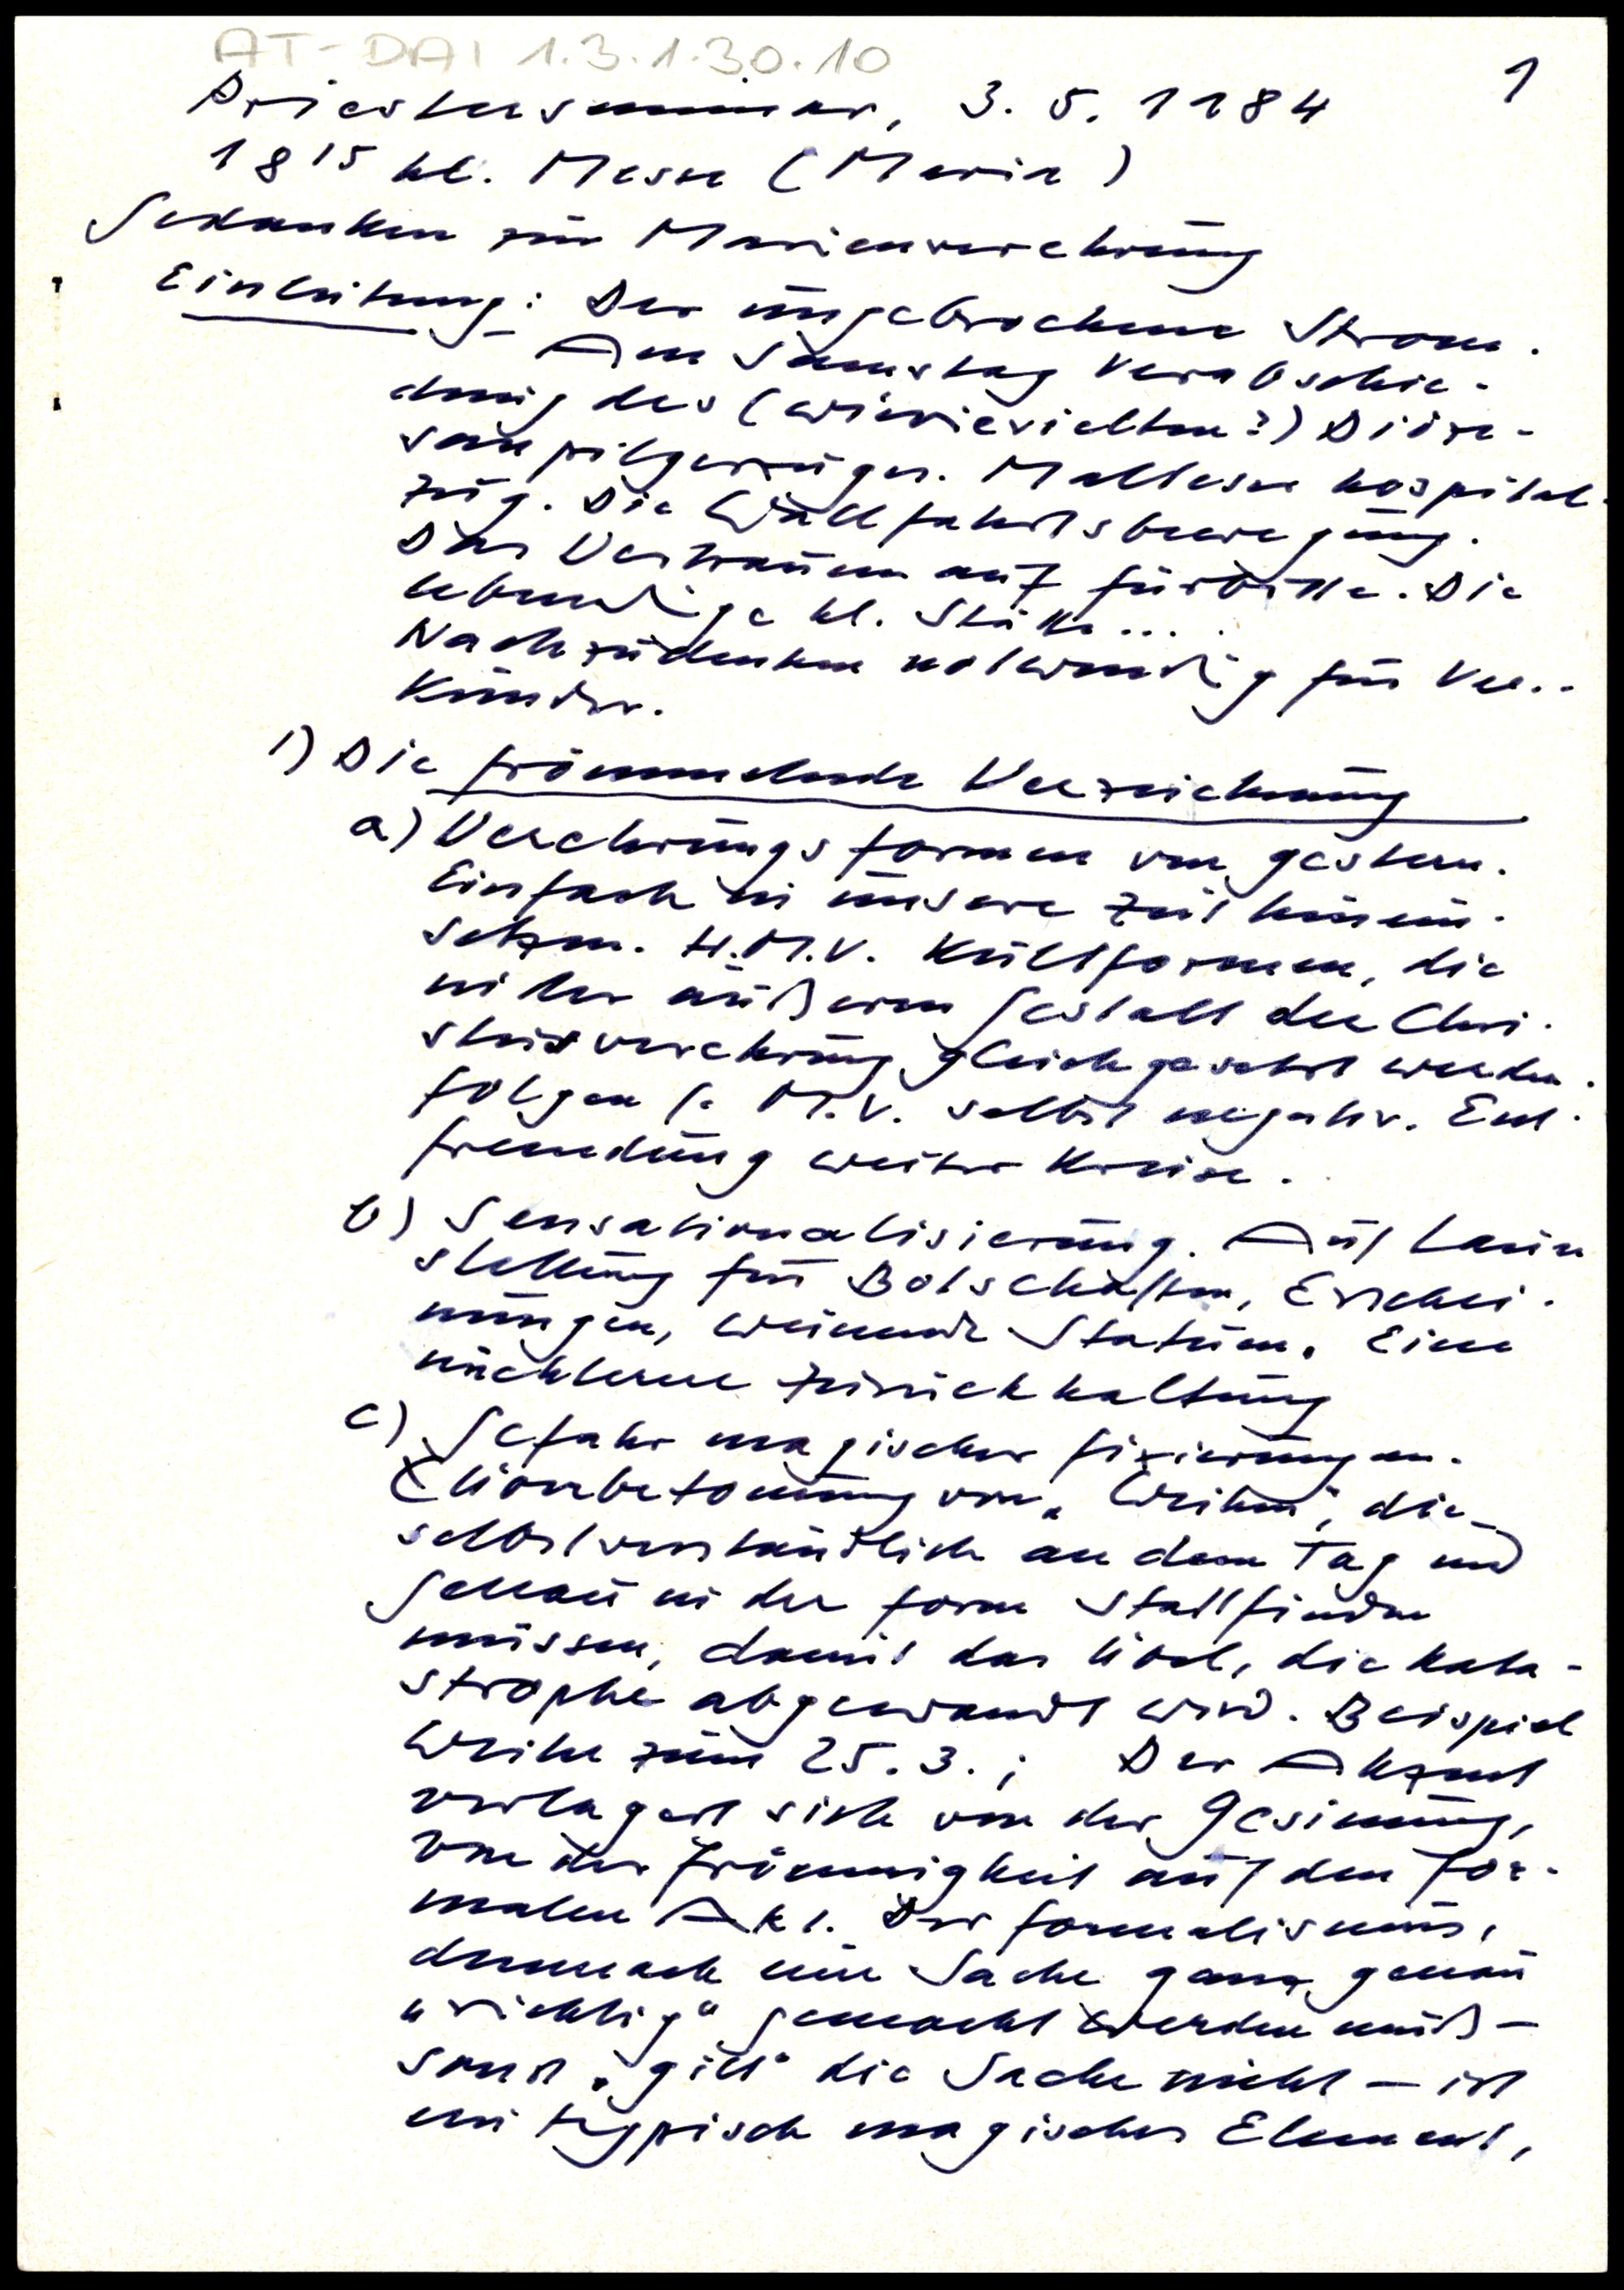 AT-DAI 1.3.1.30.10
1
Priesterseminar, 3. 5. 1984
18 15 hl. Messe (Maria)
Gedanken zur Marienverehrung
Einleitung: Der ungebrochene Strom.
Am Samstag Verabschie-
dung des (wievielten?) Diöze-
sanpilgerzuges. Malteser hospital-
zug. Die Wallfahrtsbewegung.
Das Vertrauen auf Fürbitte. Die
lebendige hl. Stätte...
Nachzudenken notwendig für Ver-
künder.
1) Die frömmelnde Verzeichnung
a) Verehrungsformen von gestern.
Einfach in unsere Zeit hinein-
setzen. H.M.V. Kultformen, die
in der äußeren Gestalt der Chri-
stusverehrung gleichgesetzt werden.
Folgen f. M.V. selbst negativ. Ent-
fremdung weiter Kreise.
b) Sensationalisierung. Auf
stellung für Botschaften, Erschei-
nungen, weinende Statuen. Eine
nüchterne Zurückhaltung
c) Gefahr magischer Fixierungen.
Überbetonung von "Weihen", die
selbstverständlich an dem Tag und
genau in der Form stattfinden
müssen, damit das Übel, die Kata-
strophe abgewandt wird. Beispiel
Weihe zum 25. 3.; Der Akzent
verlagert sich von der Gesinnung,
von der Frömmigkeit auf den for-
malen Akt. Der Formalismus,
demnach eine Sache ganz genau
"richtig" gemacht werden muß –
sonst "gilt" die Sache nicht – ist
ein typisch magisches Element,